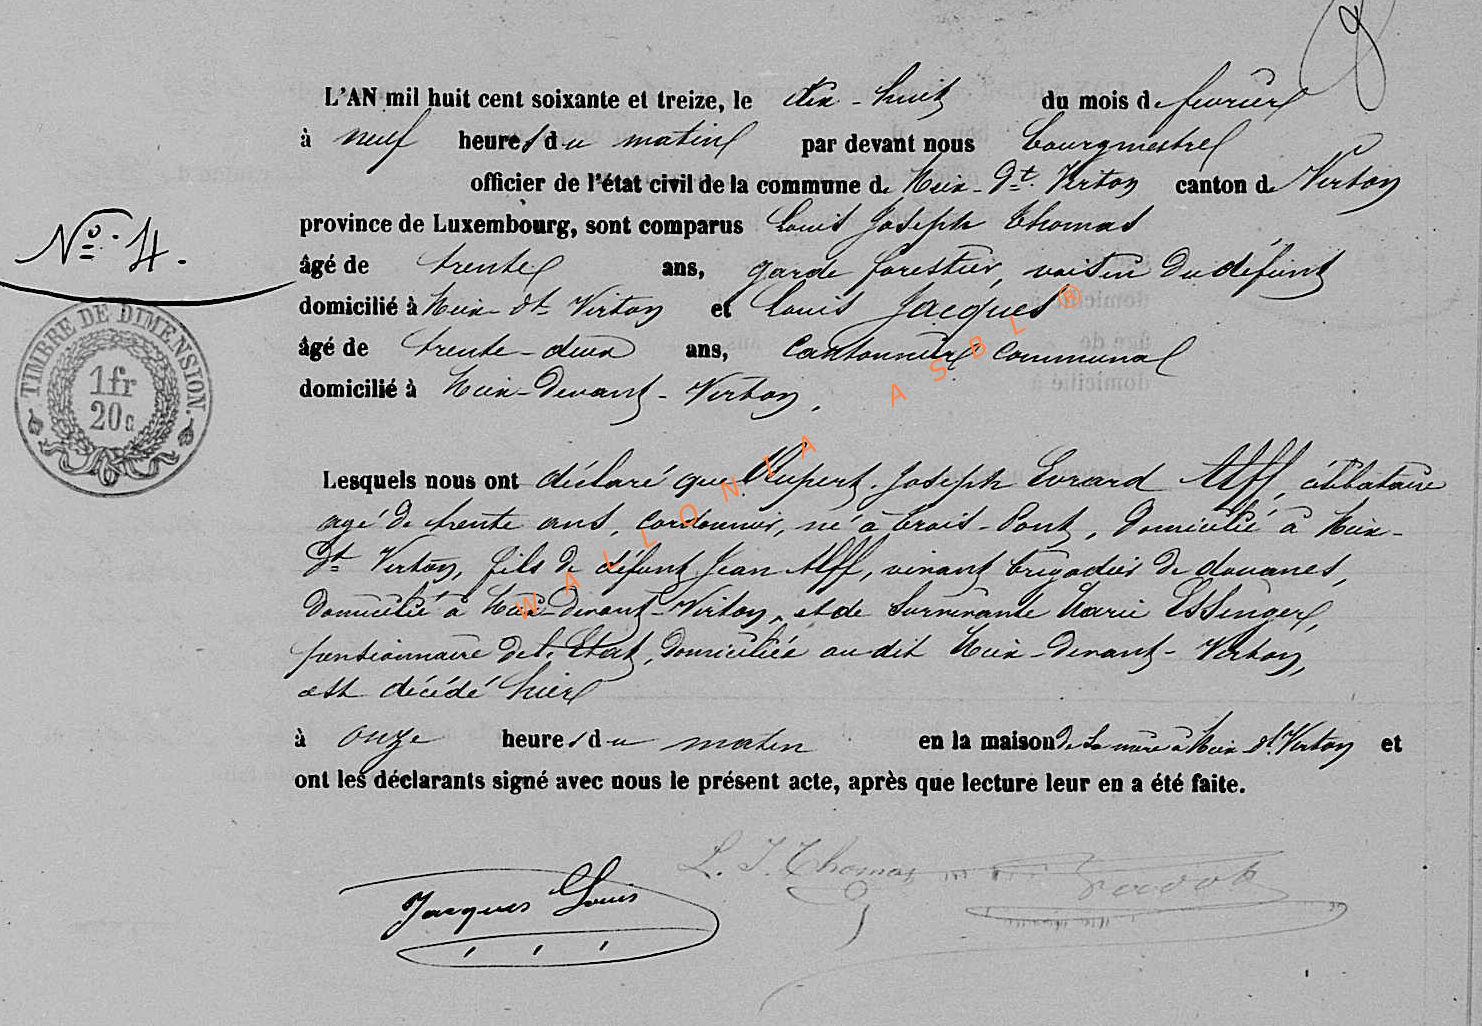 L'AN mil huit cent soixante et treize, le dix-huit du mois de fevrier
à neuf heures du matin par devant nous bourgmestre
officier de l'état civil de la commune de Meix-dt. Virton canton de Virton
province de Luxembourg, sont comparus Louis Joseph Thomas
No. 4.
âgé de trente ans, garde forestier, voisin du défunt
domicilié à Meix-dt Virton et Louis Jacques
âgé de trente-deux ans, cantonnier communal
domicilié à Meix-Devant-Virton,
TIMBRE DE DIMENSION.
1fr
20c
Lesquels nous ont déclaré que Rupert Joseph Evrard Alff, célibataire
agé de trente ans, cordonnier, né à trois-Ponts, domicilié à Meix-
dt Virton, fils de défunt Jean Alff, vivant brigadier de douanes,
domicilié à Meix-devant-Virton, et de survivante Marie Essinger,
pensionnaire de l'Etat, domiciliée au dit Meix-Devant-Virton,
est décédé hier
à onze heures du matin en la maison de sa mère à Meix dt Virton et
ont les déclarants signé avec nous le présent acte, après que lecture leur en a été faite.
L. J. Thomas
Jacques Louis
WALLONIA ASBL®